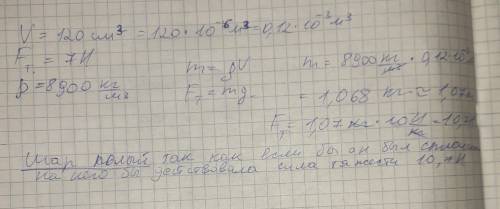 V = 120 см³ = 120 · 10⁻⁶ м³ = 0,12 · 10⁻³ м³
Fт = 7Н
ρ = 8900 кг/м³
m = ρV
m = 8900 кг/м³ · 0,12 · 10
Fт = mg
= 1,068 кг ≈ 1,07
Fт = 1,07 кг · 10 Н/кг = 10,7
Шар полый так как если бы он был
на него бы действовала сила тяжести 10,7Н